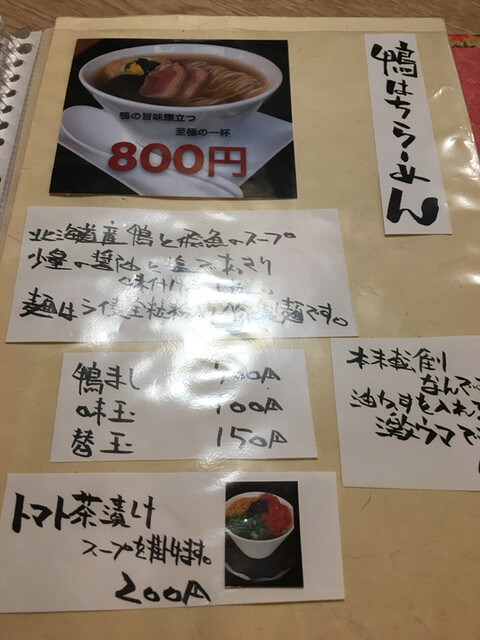 鴨はちらーめん
鴨の旨味際立つ
至極の一杯
800円
北海道産鴨と飛魚のスープ
少量の醤油と塩であっさり
味付け
麺は 全粒粉 製麺です。
鴨まし 00円
味玉 100円
替玉 150円
本末転倒
なんで
油かすを入れて
激ウマで
トマト茶漬け
スープを掛けます。
200円